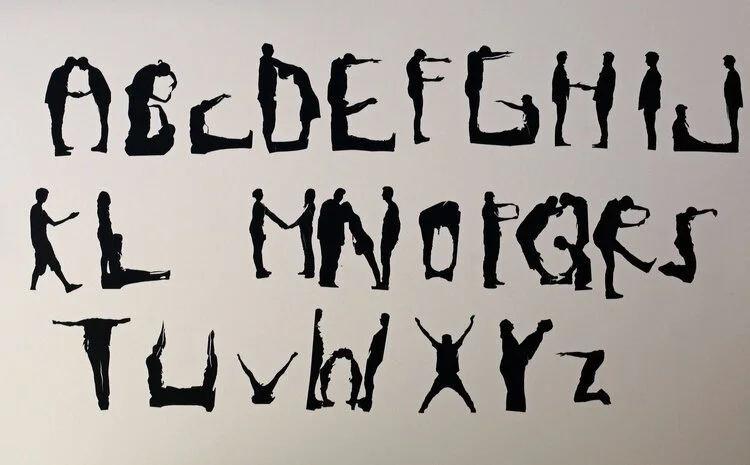 ABCDEFGHIJ
KL MNOPQRS
TUVWXYZ